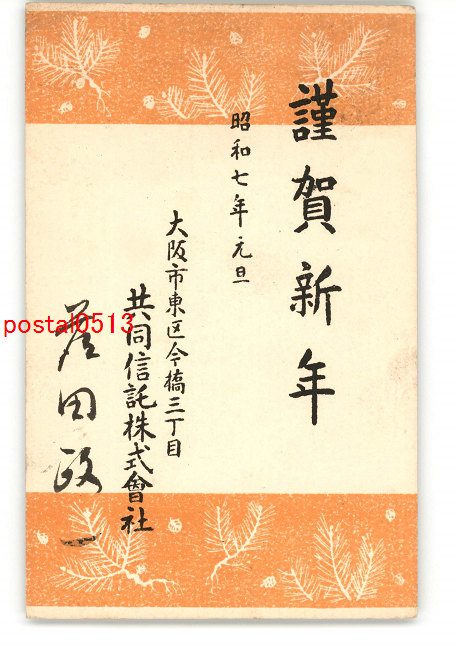 謹賀新年
昭和七年元旦
大阪市東区今橋三丁目
共同信託株式會社
田政一
postal0513